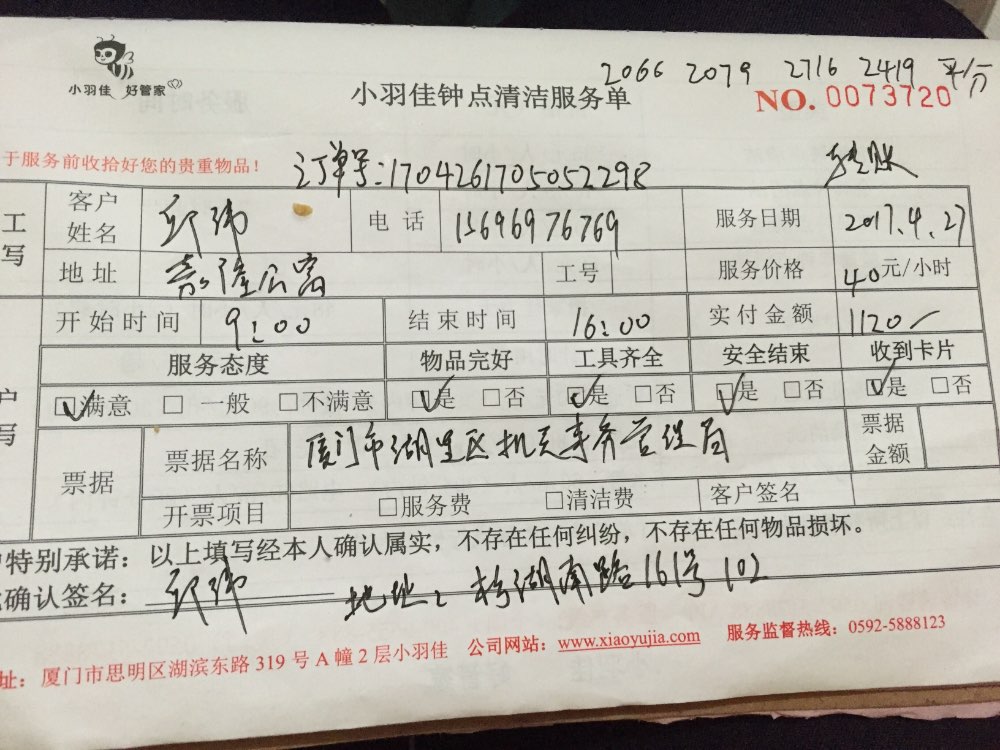 2066 2079 2716 2419 平分
小羽佳 好管家
小羽佳钟点清洁服务单
NO. 0073720
于服务前收拾好您的贵重物品！
订单号:1704261705052298
转账
工写
客户姓名 邱玮 电话 15696976769 服务日期 2017.4.27
地址 嘉隆公寓 工号 服务价格 40元/小时
开始时间 9:00 结束时间 16:00 实付金额 1120
服务态度 物品完好 工具齐全 安全结束 收到卡片
☑满意 □一般 □不满意 ☑是 □否 ☑是 □否 ☑是 □否 ☑是 □否
户写
票据 票据名称 厦门市湖里区机关事务管理局 票据金额
开票项目 □服务费 □清洁费 客户签名
特别承诺：以上填写经本人确认属实，不存在任何纠纷，不存在任何物品损坏。
确认签名：邱玮 地址：杉湖南路161号102
址：厦门市思明区湖滨东路319号A幢2层小羽佳 公司网站：www.xiaoyujia.com 服务监督热线：0592-5888123